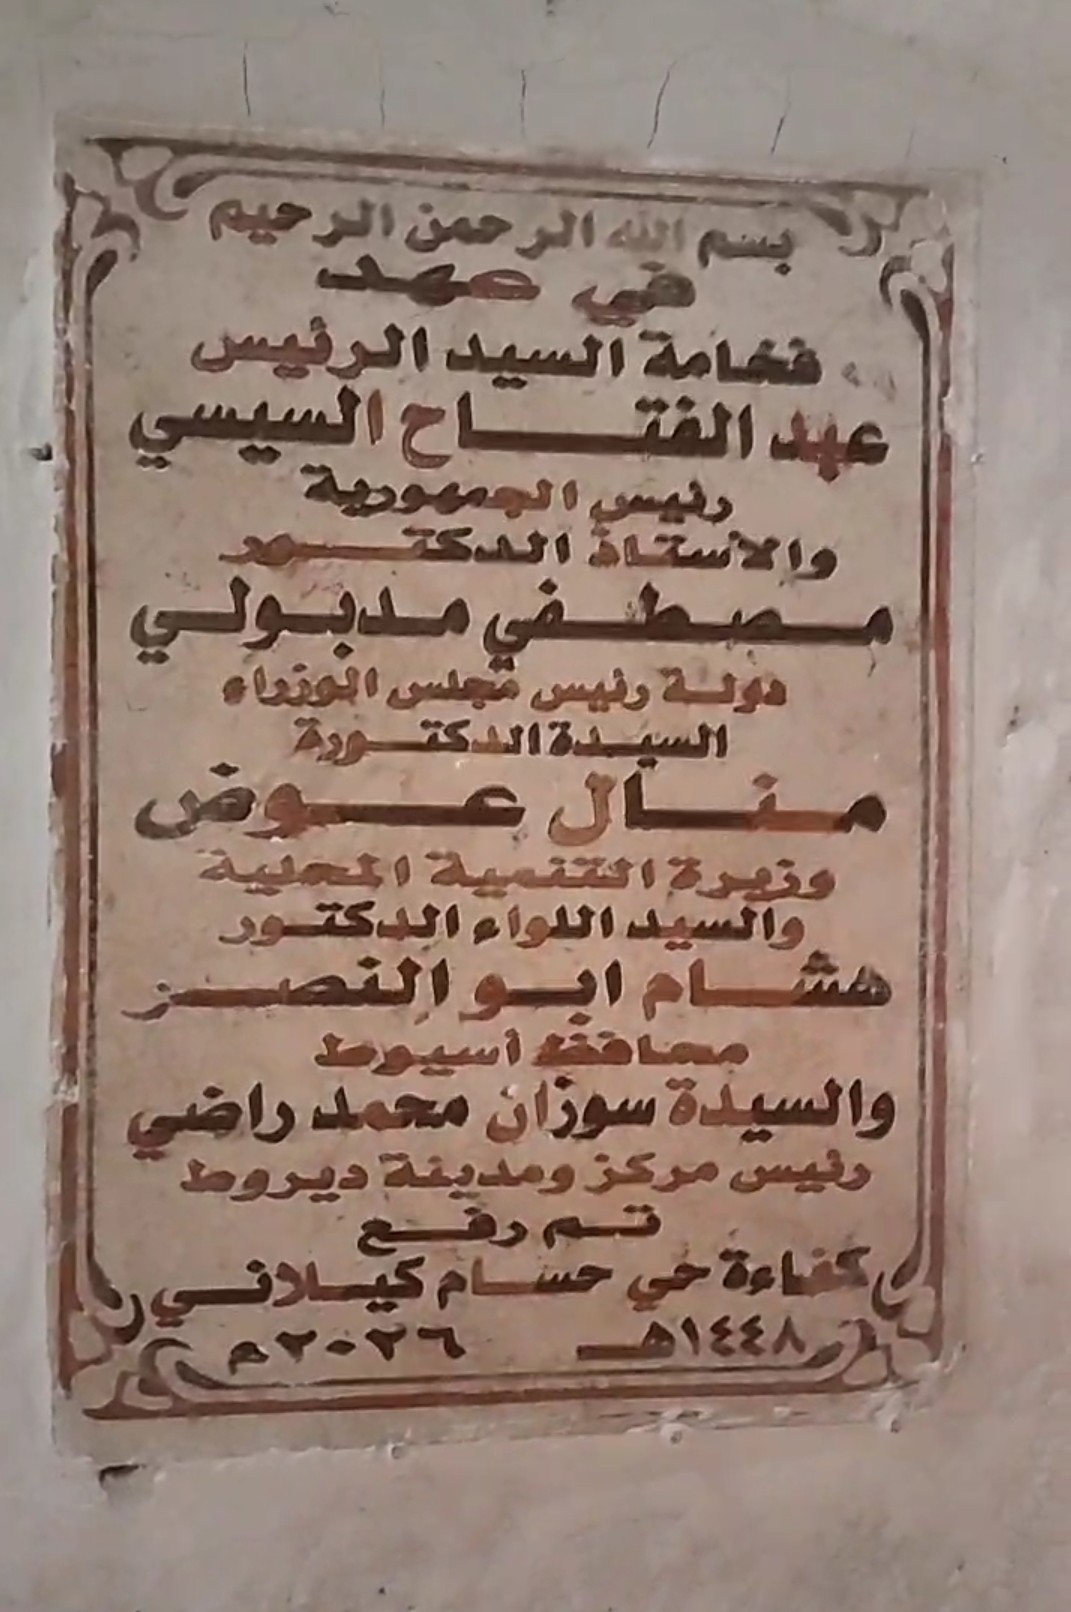 بسم الله الرحمن الرحيم
في عهد
فخامة السيد الرئيس
عبد الفتاح السيسي
رئيس الجمهورية
والاستاذ الدكتور
مصطفي مدبولي
دولة رئيس مجلس الوزراء
السيدة الدكتورة
منال عوض
وزيرة التنمية المحلية
والسيد اللواء الدكتور
هشام ابو النصر
محافظ أسيوط
والسيدة سوزان محمد راضي
رئيس مركز ومدينة ديروط
تم رفع
كفاءة حي حسام كيلاني
١٤٤٨هـ ٢٠٢٦م